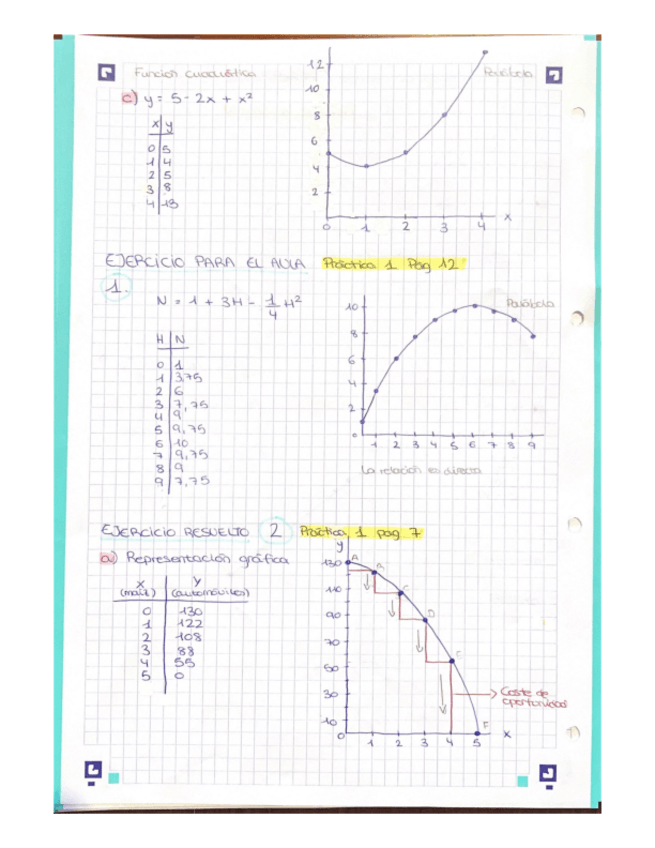 Función Cuadrática
Parábola
c) y = 5 - 2x + x²
x y
0 5
1 4
2 5
3 8
4 13
12
10
8
6
4
2
0 1 2 3 4 x
EJERCICIO PARA EL AULA Práctica 1 Pag 12
1.
N = 1 + 3H - 1/4 H²
Parábola
H N
0 1
1 3,75
2 6
3 7,75
4 9
5 9,75
6 10
7 9,75
8 9
9 7,75
10
8
6
4
2
0 1 2 3 4 5 6 7 8 9
La relación es directa
EJERCICIO RESUELTO 2 Práctica 1 pag 7
a) Representación gráfica
x y
(maíz) (automóviles)
0 130
1 122
2 108
3 88
4 55
5 0
y
130
110
90
70
50
30
10
0 1 2 3 4 5 x
A
B
C
D
E
F
Coste de
oportunidad